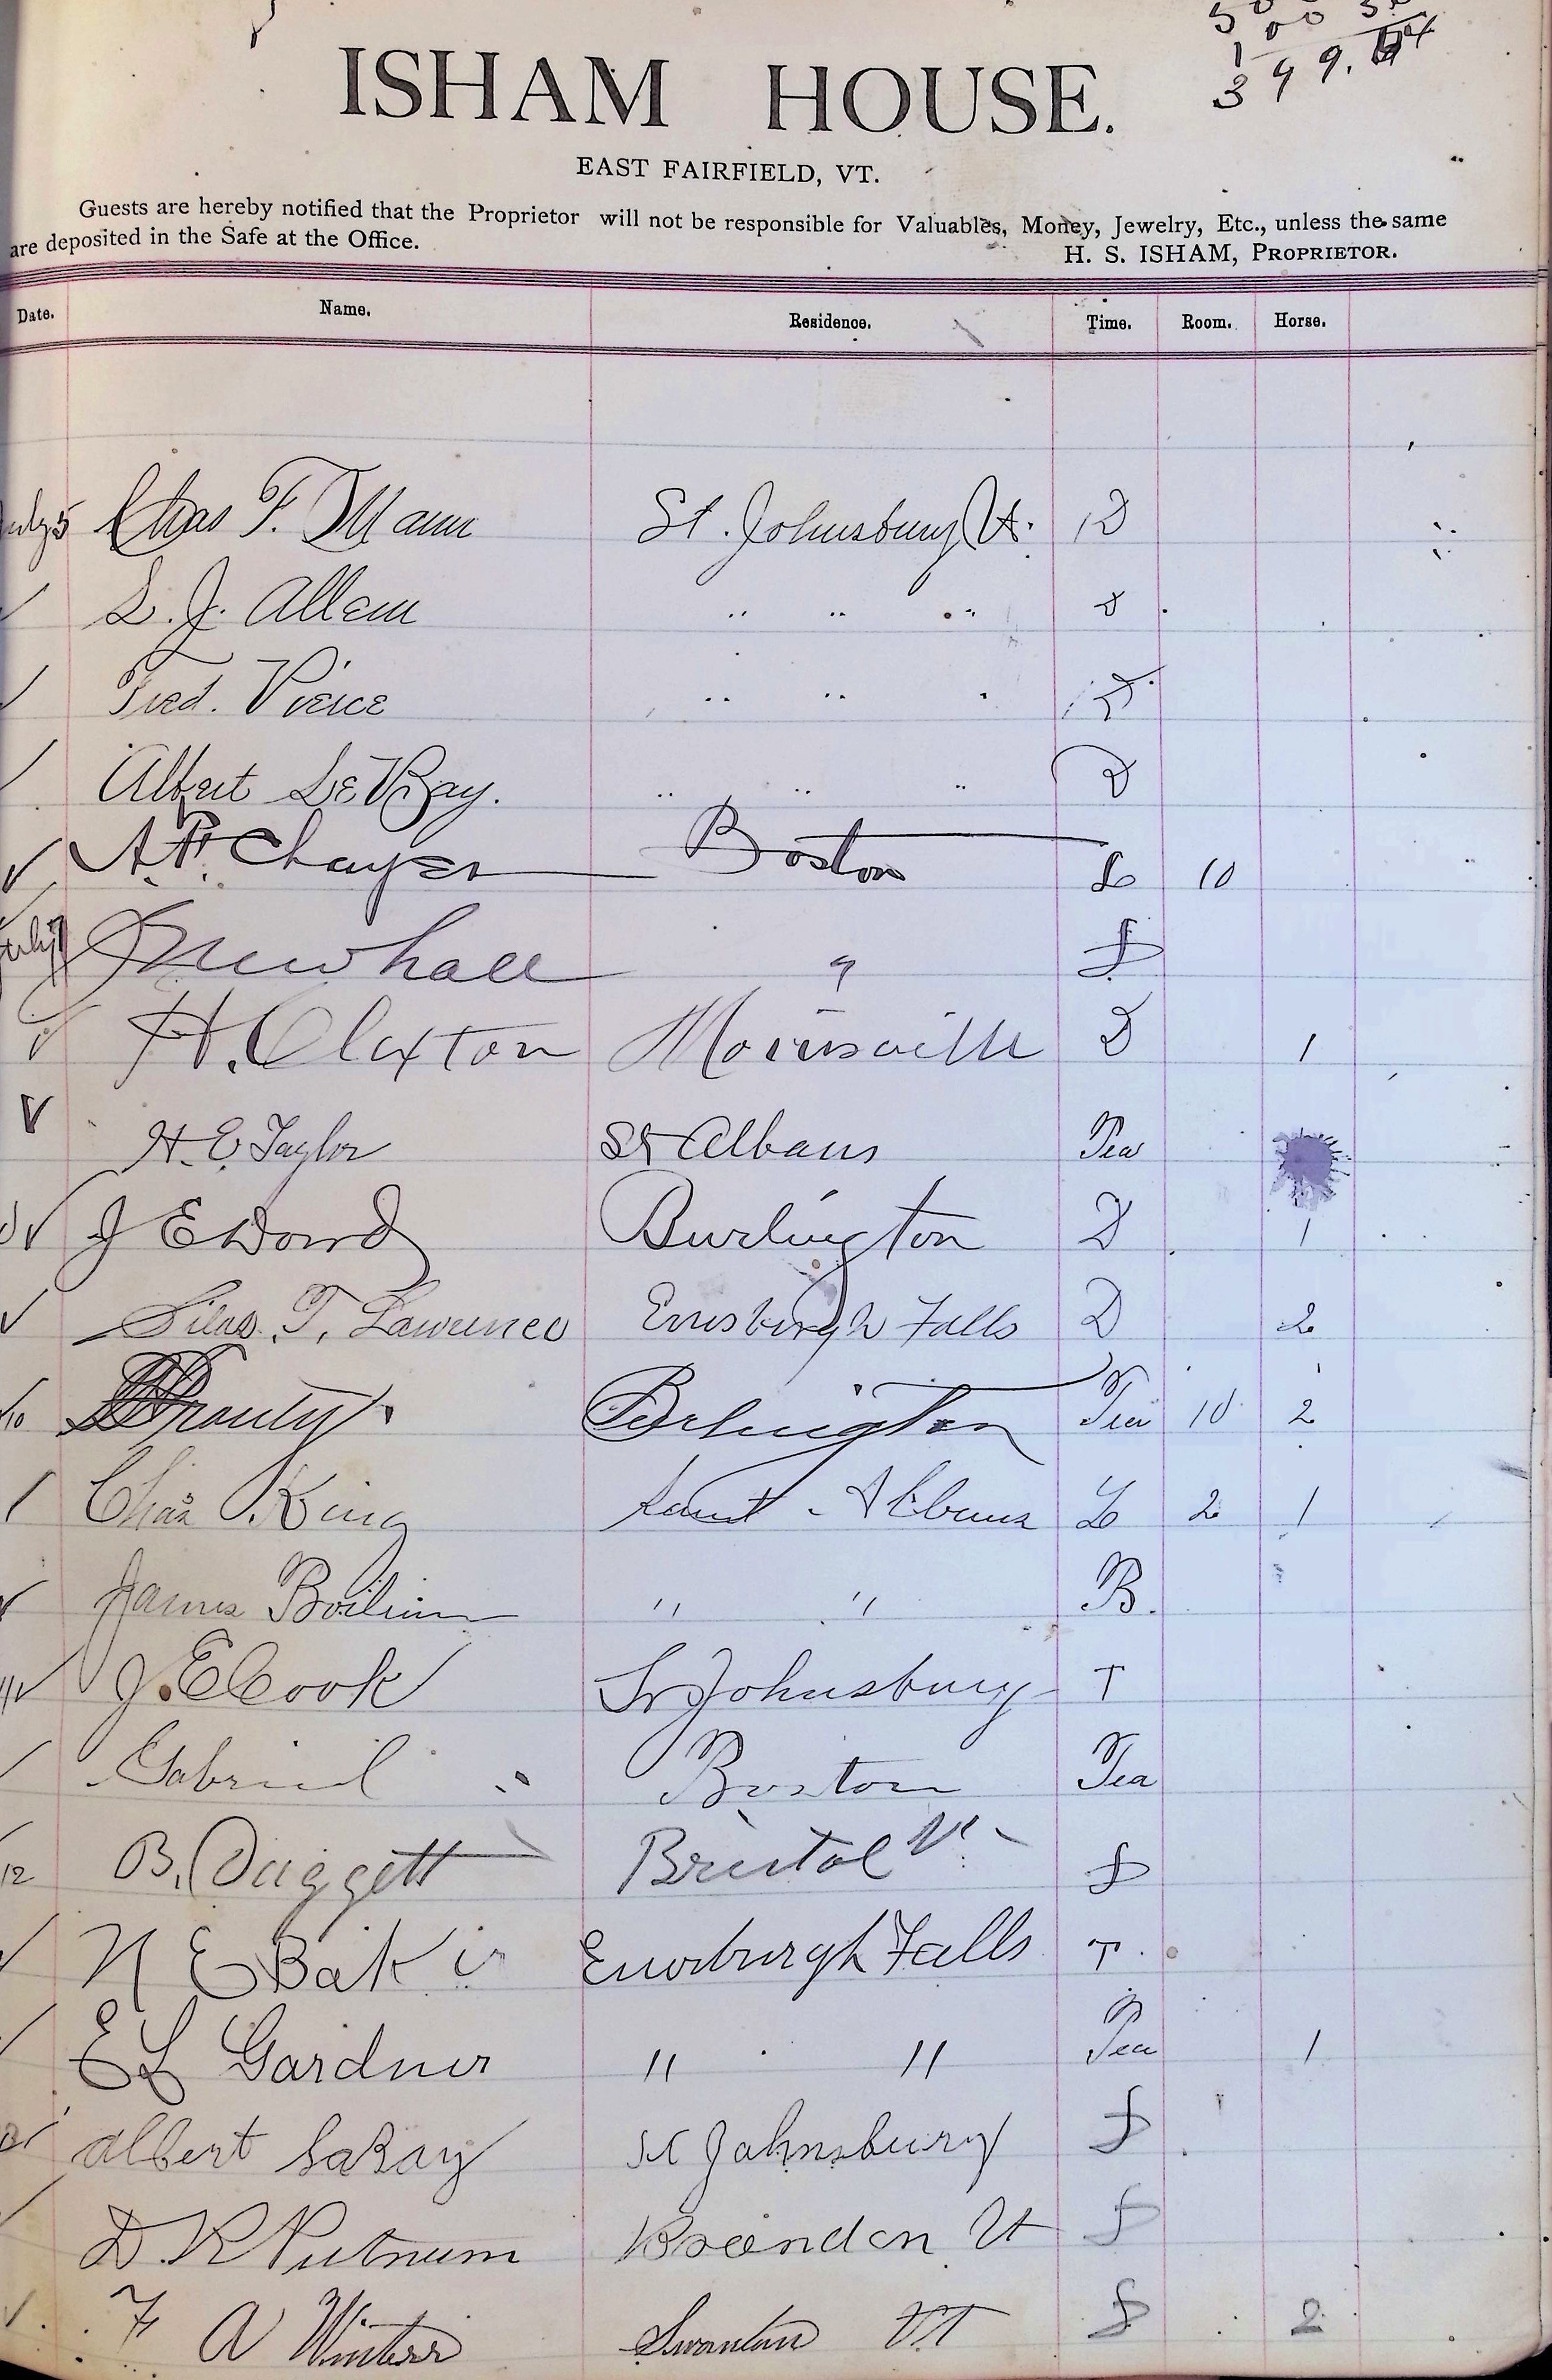 ISHAM HOUSE.
EAST FAIRFIELD, VT.
Guests are hereby notified that the Proprietor will not be responsible for Valuables, Money, Jewelry, Etc., unless the same
are deposited in the Safe at the Office.
H. S. ISHAM, PROPRIETOR.
Date. Name. Residence. Time. Room. Horse.
July 5 Chas F. Mann St. Johnsbury Vt. D
L. J. Allen " " " D
Fred. Pierce " "
Albert LeBay. " " " D
A. P. Boston L 10
July Newhall "
H. Claxton Morrisville D 1
H. E. Taylor St Albans Tea
J E Burlington D 1
Silas. T. Lawrence Enosburgh Falls D 2
10 Prouty Burlington Tea 10 2
Chas King Saint Albans L 2 1
James " " B.
11 J. E Cook St Johnsbury T
Gabriel " Boston Tea
12 B. Daggett Bristol Vt
N E Baker Enosburgh Falls T.
E L Gardner " " Tea 1
Albert LaBay St Johnsbury
D. R Putnum Brandon Vt
F A Winters Swanton VT 2